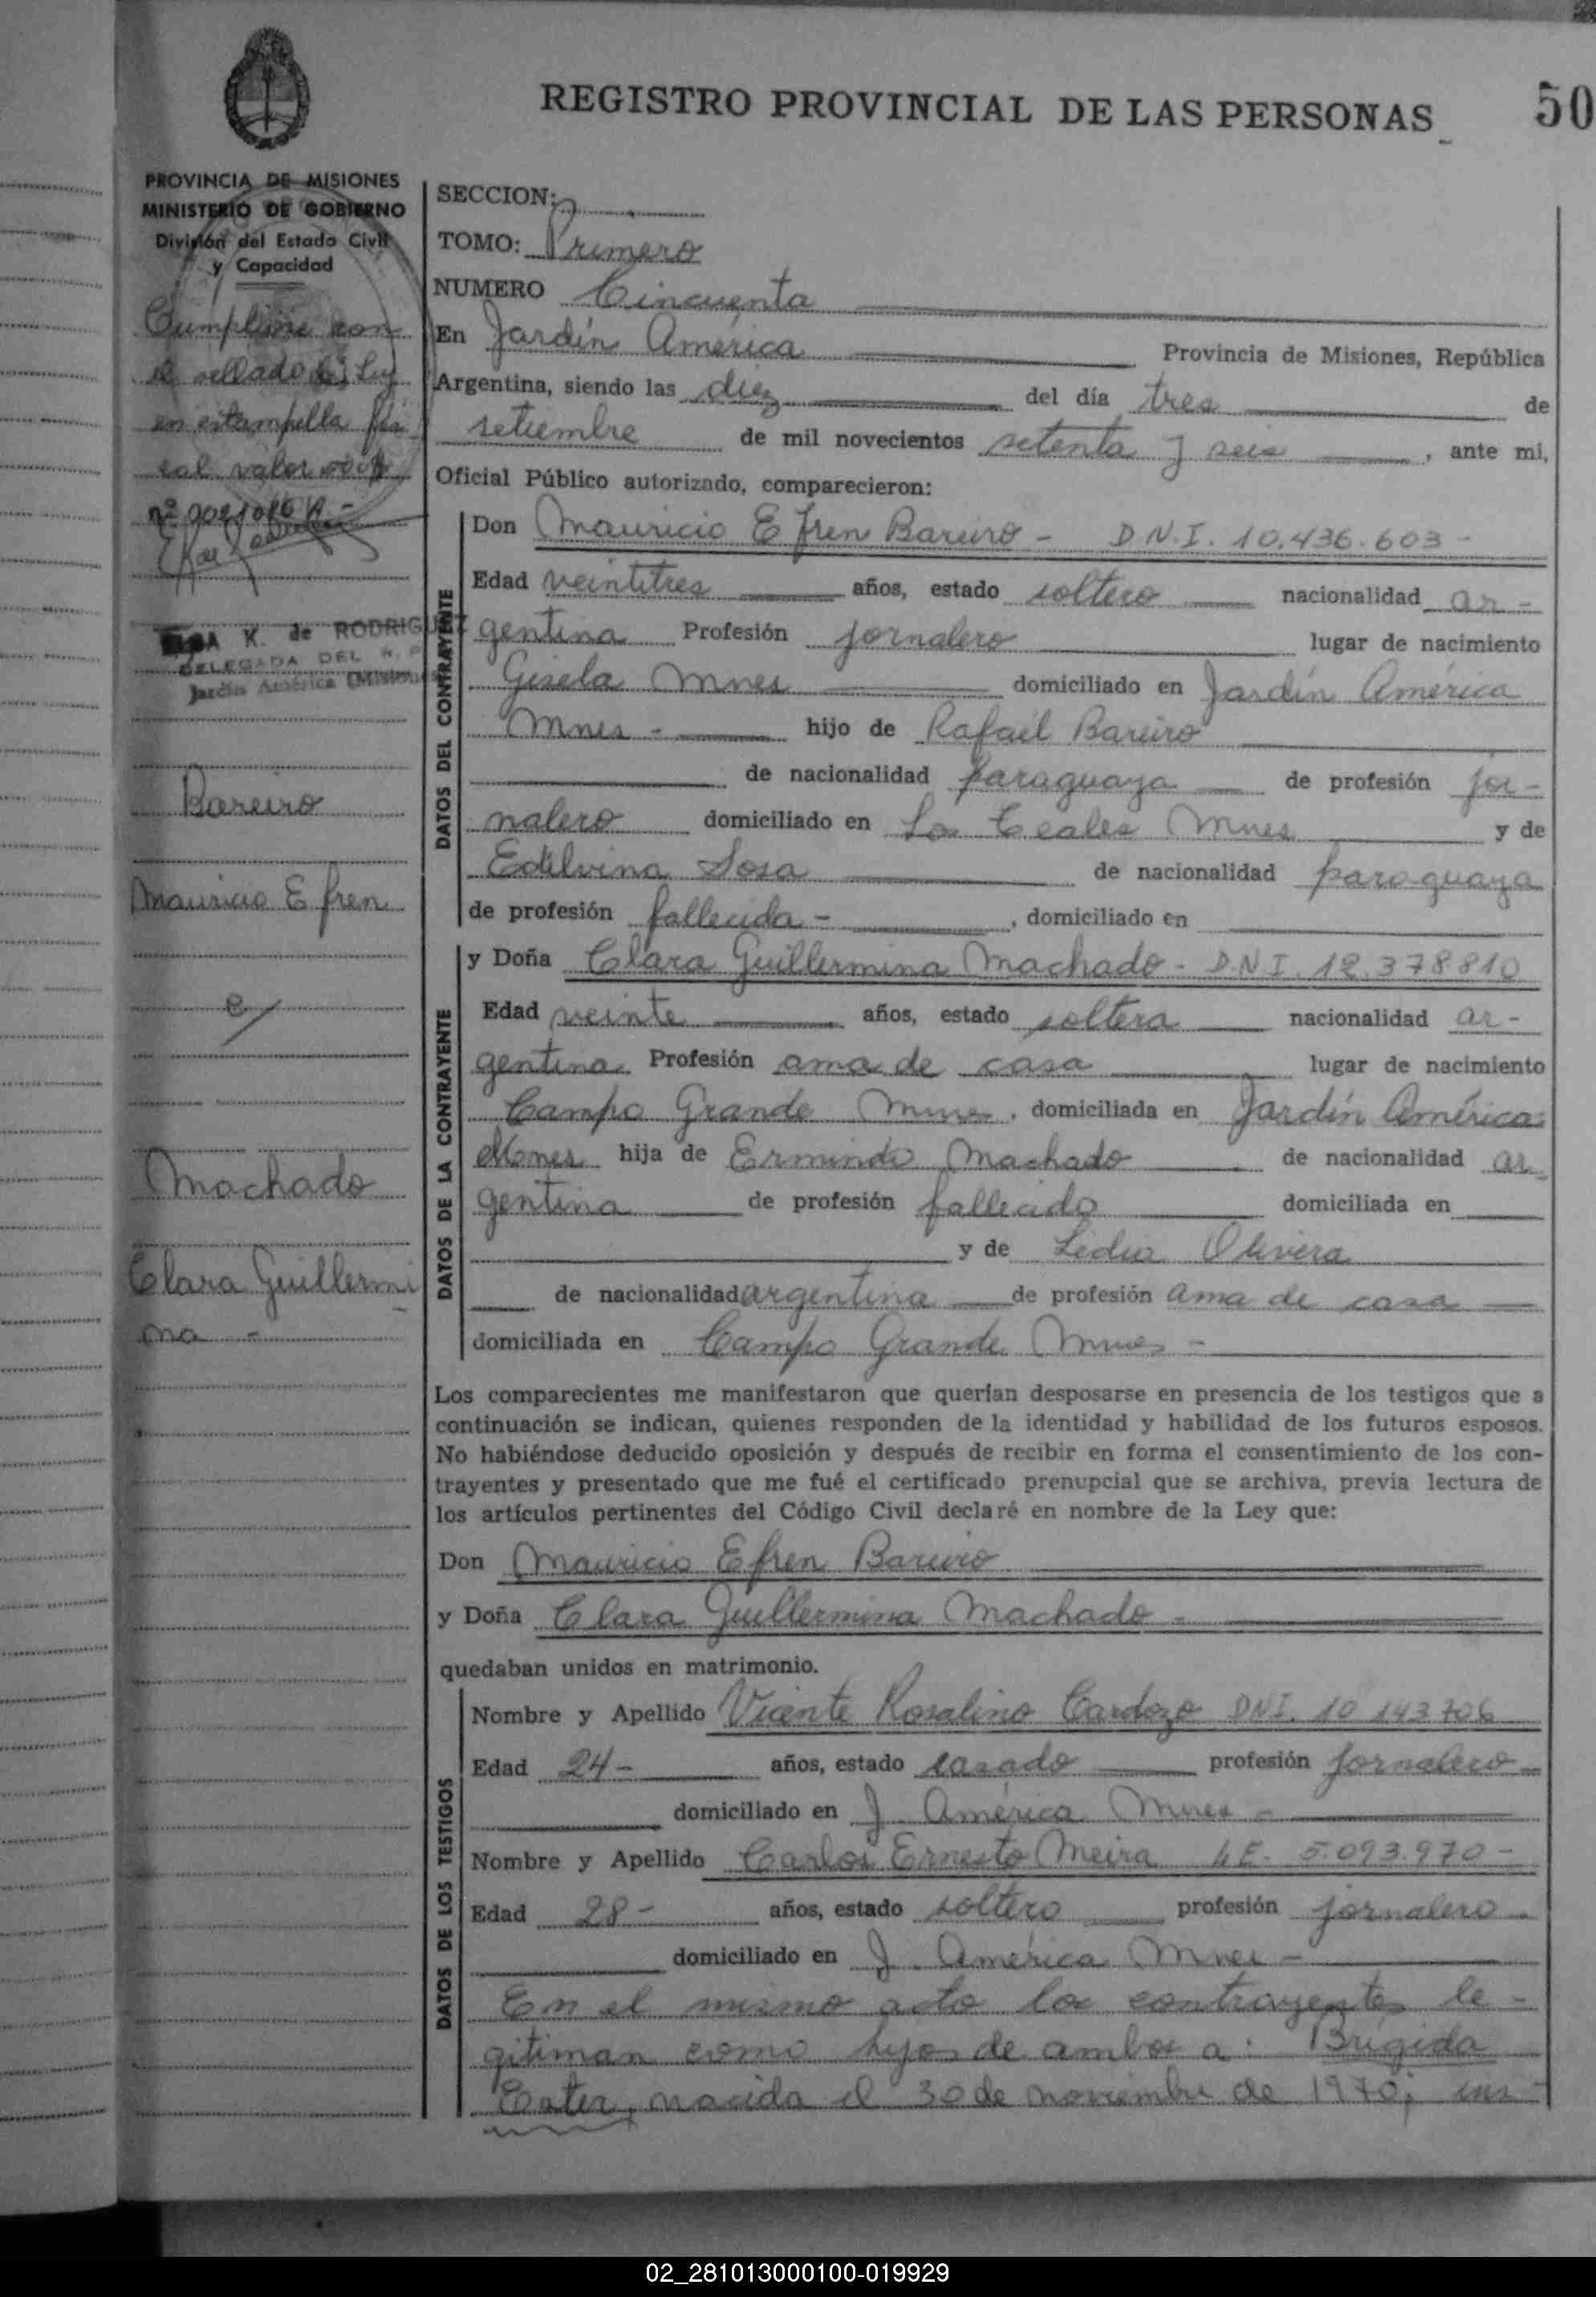 REGISTRO PROVINCIAL DE LAS PERSONAS
50
PROVINCIA DE MISIONES
MINISTERIO DE GOBIERNO
División del Estado Civil
y Capacidad
Cumplióse con
el sellado de Ley
en estampilla fis
cal valor
nº
K. de RODRIGUEZ
DELEGADA DEL R. P.
Jardín América (Misiones)
Bareiro
Mauricio Efren
e/
Machado
Clara Guillermi
na -
SECCION:
TOMO: Primero
NUMERO Cincuenta
En Jardín América Provincia de Misiones, República
Argentina, siendo las diez del día tres de
setiembre de mil novecientos setenta y seis, ante mi,
Oficial Público autorizado, comparecieron:
DATOS DEL CONTRAYENTE
Don Mauricio Efren Bareiro - D.N.I. 10.436.603 -
Edad veintitres años, estado soltero nacionalidad ar-
gentina Profesión jornalero lugar de nacimiento
Gisela Mnes domiciliado en Jardín América
Mnes - hijo de Rafael Bareiro
de nacionalidad paraguaya de profesión jor-
nalero domiciliado en Los Teales Mnes y de
Edelvina Sosa de nacionalidad paraguaya
de profesión fallecida -, domiciliado en
DATOS DE LA CONTRAYENTE
y Doña Clara Guillermina Machado - D.N.I. 12.378810
Edad veinte años, estado soltera nacionalidad ar-
gentina Profesión ama de casa lugar de nacimiento
Campo Grande Mnes, domiciliada en Jardín América
Mones hija de Ermindo Machado de nacionalidad ar
gentina de profesión fallecido domiciliada en
y de Ledia Olivera
de nacionalidad argentina de profesión ama de casa
domiciliada en Campo Grande Mnes -
Los comparecientes me manifestaron que querían desposarse en presencia de los testigos que a
continuación se indican, quienes responden de la identidad y habilidad de los futuros esposos.
No habiéndose deducido oposición y después de recibir en forma el consentimiento de los con-
trayentes y presentado que me fué el certificado prenupcial que se archiva, previa lectura de
los artículos pertinentes del Código Civil declaré en nombre de la Ley que:
Don Mauricio Efren Bareiro
y Doña Clara Guillermina Machado -
quedaban unidos en matrimonio.
DATOS DE LOS TESTIGOS
Nombre y Apellido Vicente Rosalino Cardozo DNI. 10 143706
Edad 24- años, estado casado profesión jornalero -
domiciliado en J. América Mnes -
Nombre y Apellido Carlos Ernesto Meira LE- 5.093.970 -
Edad 28- años, estado soltero profesión jornalero
domiciliado en J. América Mnes -
En el mismo acto los contrayentes le-
gitiman como hijos de ambos a: Brígida
Ester, nacida el 30 de noviembre de 1970; ins-
02_281013000100-019929